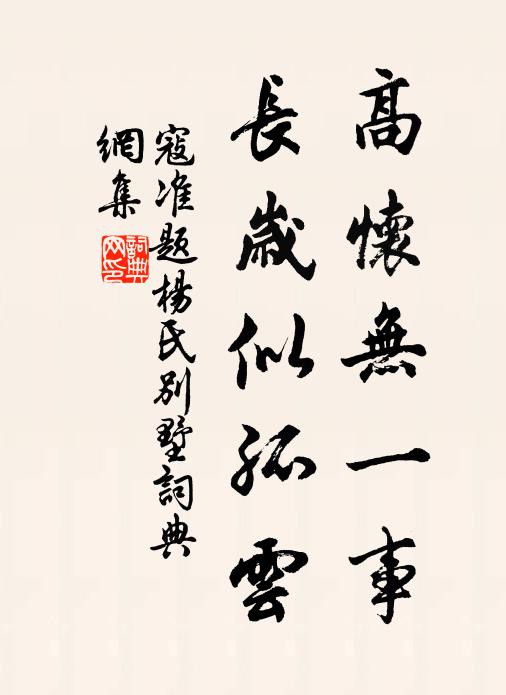 高懷無一事
長歲似孤雲
寇准題楊氏別墅詞典
網集
詞典網印